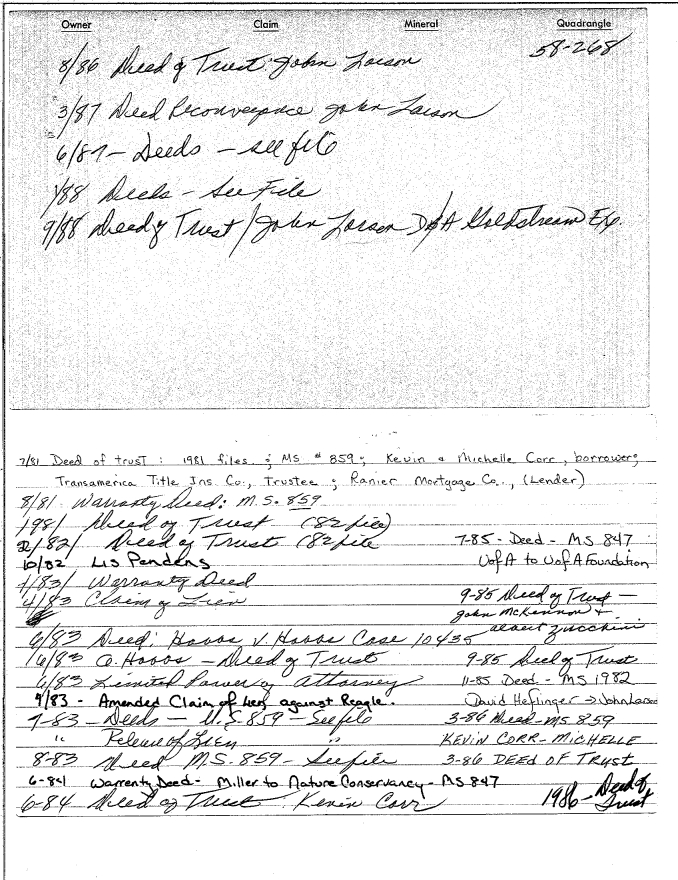 Owner Claim Mineral Quadrangle
58-268
8/86 Deed of Trust: John Larson
3/87 Deed Reconveyance John Larson
6/87 - Deeds - see file
1/88 Deeds - See File
9/88 Deed of Trust / John Larson D&A Goldstream Exp.
7/81 Deed of trust : 1981 files ; MS # 859; Kevin & Michelle Corr, borrower;
Transamerica Title Ins Co., Trustee ; Ranier Mortgage Co., (Lender)
8/81 Warranty Deed: M.S. 859
1981 Deed of Trust (82 file)
/82/ Deed of Trust (82 file
10/82 Lis Pendens
1/83/ Warranty Deed
4/83 Claim of Lien
6/83 Deed: Hovos v. Hovos Case 10435
6/83 Q. Hovos - Deed of Trust
6/83 Limited Power of Attorney
9/83 - Amended Claim of Lien against Reagle.
7-83 - Deeds - U.S. 859 - See file
" Release of Lien "
8-83 Deed M.S. 859 - See file
6-84 Warrenty Deed - Miller to Nature Conservancy - MS 847
6-84 Deed of Trust Kevin Corr
7-85 - Deed - MS 847
U of A to U of A Foundation
9-85 Deed of Trust -
John McKinnon +
albert zucchini
9-85 Deed of Trust
11-85 Deed - MS 1982
David Heflinger → John Larson
3-86 Deed - MS 859
KEVIN CORR - MICHELLE
3-86 DEED OF TRUST
1986 - Deed of
Trust